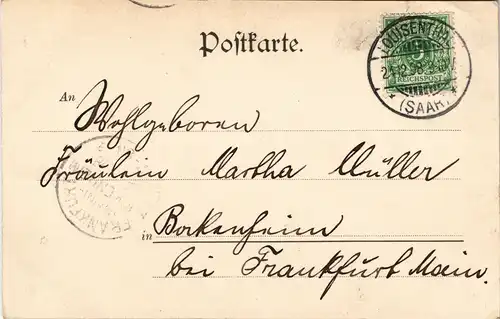 Postkarte.
LOUISENTHAL
REICHSPOST
(SAAR)
An Wohlgeboren
Fräulein Martha Müller
FRANKFURT
in Bockenheim
bei Frankfurt Main.